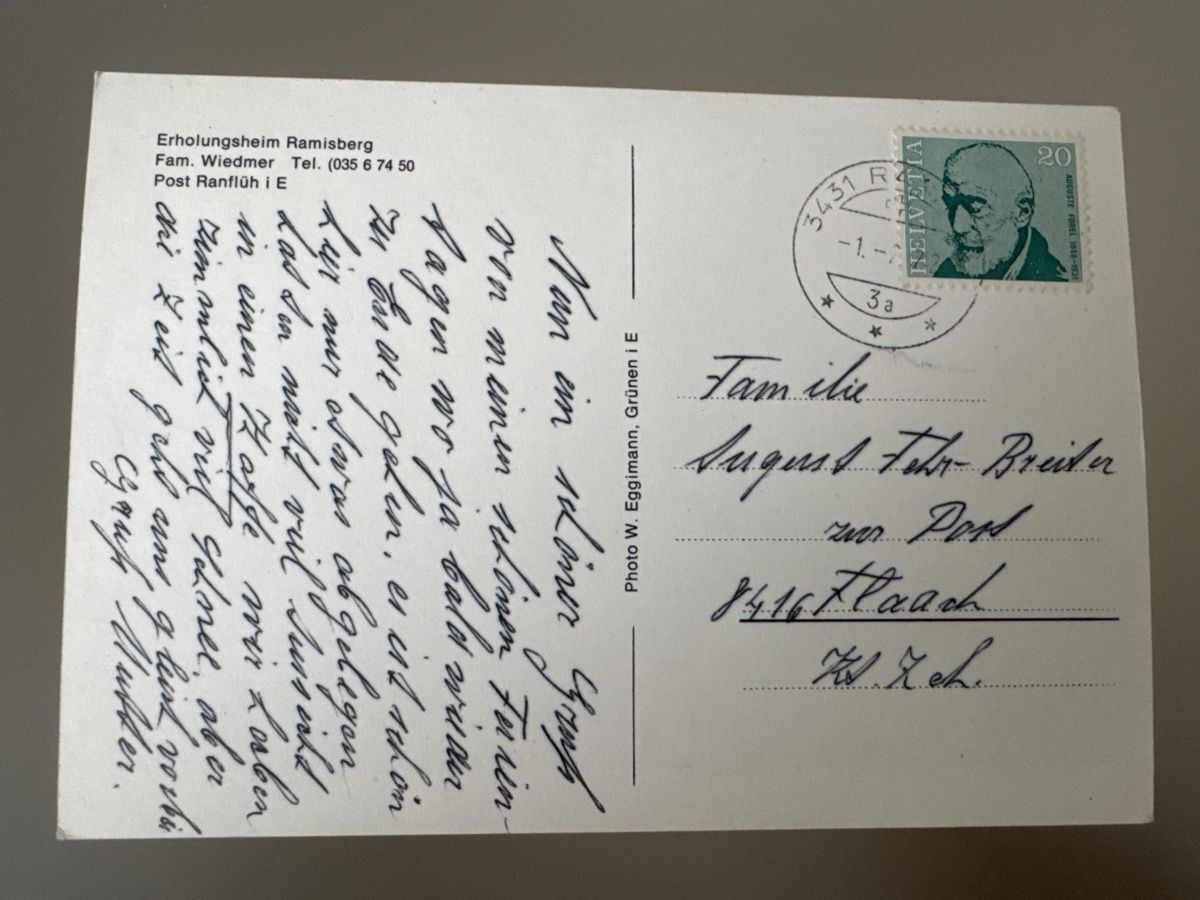 Erholungsheim Ramisberg
Fam. Wiedmer Tel. (035 6 74 50
Post Ranflüh i E
Nun ein schöner Gruss
von meinen schönen Ferien-
tagen wo ja bald wieder
zu Ende gehen. es ist schön
hir nur etwas abgelegen
hat nicht viel
in einen wir haben
zimmlich viel Schnee. aber
die Zeit geht uns gleich vorbei
Gruss Mutter.
Photo W. Eggimann, Grünen i E
HELVETIA
20
AUGUSTE FOREL 1848-1931
3431 RA
-1.-
3a
Familie
August Fehr-Breiter
zur Post
8416 Flaach
Kt. Zch.